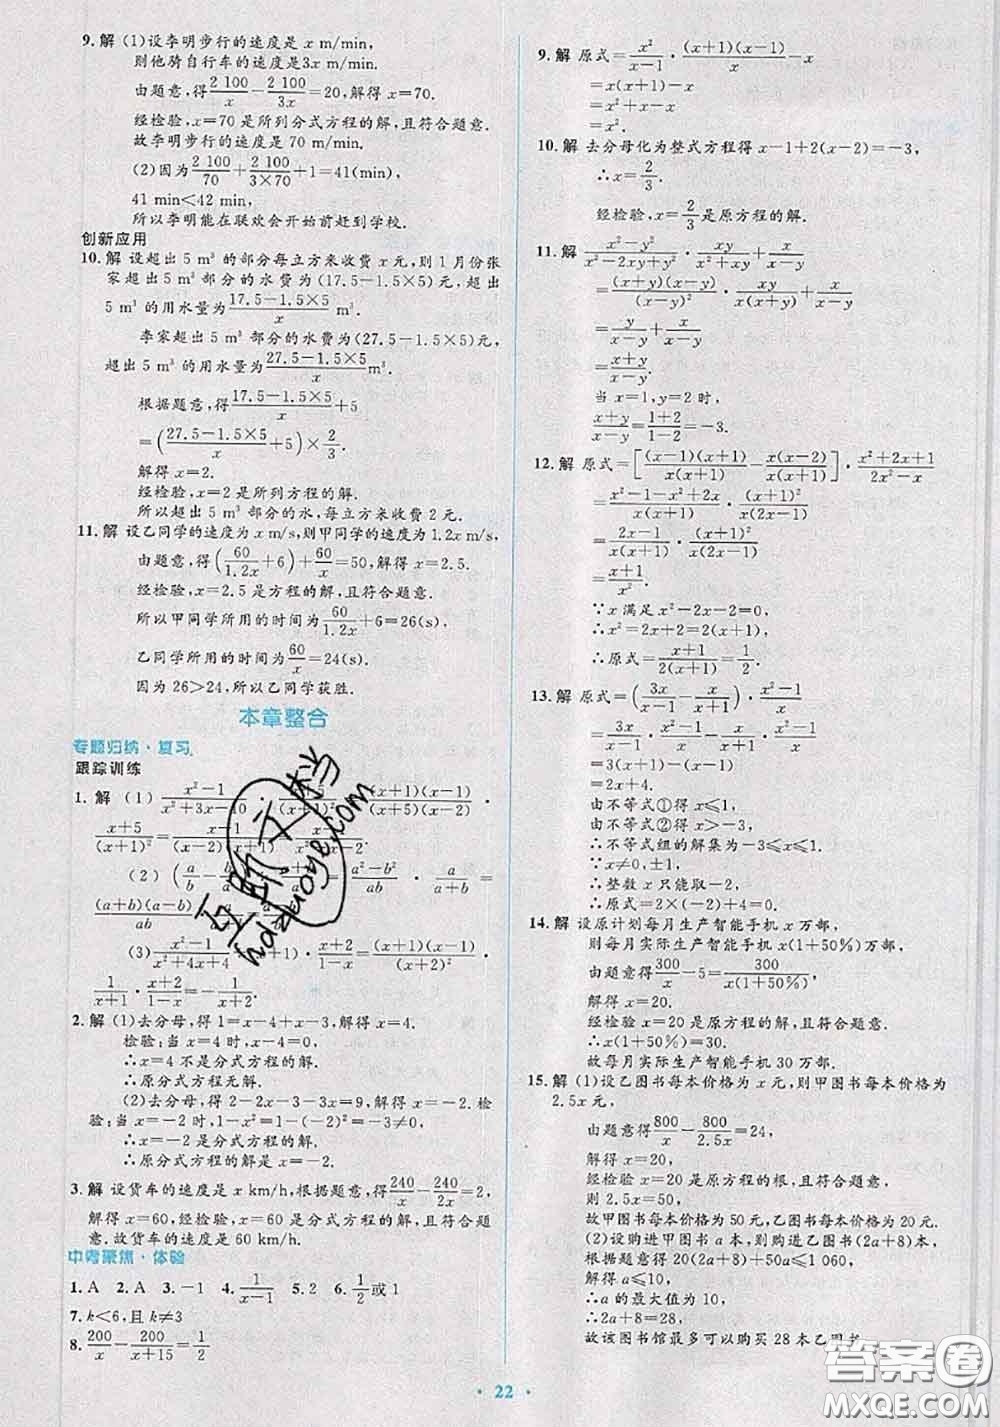 9. 解 (1)设李明步行的速度是 x m/min,
则他骑自行车的速度是3x m/min.
由题意,得 2 100/x − 2 100/3x = 20,解得 x=70.
经检验,x=70 是所列分式方程的解,且符合题意.
故李明步行的速度是 70 m/min.
(2)因为 2 100/70 + 2 100/3×70 + 1 = 41(min),
41 min<42 min,
所以李明能在联欢会开始前赶到学校.
创新应用
10. 解 设超出 5 m³ 的部分每立方米收费 x 元,则 1 月份张
家超出 5 m³ 部分的水费为(17.5−1.5×5)元,超出 5
m³ 的用水量为 17.5−1.5×5/x m³.
李家超出 5 m³ 部分的水费为(27.5−1.5×5)元,
超出 5 m³ 的用水量为 27.5−1.5×5/x m³.
根据题意,得 17.5−1.5×5/x + 5
=(27.5−1.5×5/x + 5)×2/3.
解得 x=2.
经检验,x=2 是所列方程的解.
所以超出 5 m³ 部分的水,每立方米收费 2 元.
11. 解 设乙同学的速度为 x m/s,则甲同学的速度为 1.2x m/s,
由题意,得(60/1.2x + 6)+ 60/x = 50,解得 x=2.5.
经检验,x=2.5 是方程的解,且符合题意.
所以甲同学所用的时间为 60/1.2x + 6 = 26(s),
乙同学所用的时间为 60/x = 24(s).
因为 26>24,所以乙同学获胜.
本章整合
专题归纳·复习
跟踪训练
1. 解 (1) x²−1/x²+3x−10 (x+1)(x−1)/(x−2)(x+5) ·
x+5/(x+1)² = x−1/
(2) a²−b²/ab · a/a+b =
(a+b)(a−b)/ab
(3) x²−1/ x+2/1−x = (x+1)(x−1)/(x+1)² ·
1/x+1 · x+2/1−x = −1/x+2.
2. 解 (1)去分母,得 1=x−4+x−3,解得 x=4.
检验:当 x=4 时,x−4=0,
∴x=4 不是分式方程的解.
∴原分式方程无解.
(2)去分母,得 2−2x−3−3x=9,解得 x=−2. 检
验,当 x=−2 时,1−x²=1−(−2)²=−3≠0,
∴x=−2 是分式方程的解.
∴原分式方程的解是 x=−2.
3. 解 设货车的速度是 x km/h,根据题意,得 240/x − 240/2x = 2,
解得 x=60,经检验,x=60 是分式方程的解且符合题
意.故货车的速度是 60 km/h.
中考聚焦·体验
1. A 2. A 3. −1 4. 1/x−1 5. 2 6. 1/2 或 1
7. k<6,且 k≠3
8. 200/x − 200/x+15 = 1/2
9. 解 原式= x²/x−1 · (x+1)(x−1)/x − x
=x(x+1)−x
=x²+x−x
=x².
10. 解 去分母化为整式方程得 x−1+2(x−2)=−3,
∴x=2/3.
经检验,x=2/3 是原方程的解.
11. 解 x²−y²/x²−2xy+y² · xy/x²+xy + x/x−y
= (x+y)(x−y)/(x−y)² · xy/x(x+y) + x/x−y
= y/x−y + x/x−y
= x+y/x−y.
当 x=1,y=2 时,
x+y/x−y = 1+2/1−2 = −3.
12. 解 原式=[(x−1)(x+1)/x(x+1) − x(x−2)/x(x+1)] · x²+2x+1/2x²−x
= x²−1−x²+2x/x(x+1) · (x+1)²/x(2x−1)
= 2x−1/x(x+1) · (x+1)²/x(2x−1)
= x+1/x².
∵x 满足 x²−2x−2=0,
∴x²=2x+2=2(x+1).
∴原式= x+1/2(x+1) = 1/2.
13. 解 原式=(3x/x−1 − x/x+1) · x²−1/x
= 3x/x−1 · x²−1/x − x/x+1 · x²−1/x
=3(x+1)−(x−1)
=2x+4.
由不等式①得 x≤1,
由不等式②得 x>−3,
∴不等式组的解集为−3<x≤1.
∵x≠0,±1,
∴整数 x 只能取−2.
∴原式=2×(−2)+4=0.
14. 解 设原计划每月生产智能手机 x 万部,
则每月实际生产智能手机 x(1+50%)万部,
由题意得 300/x − 5 = 300/x(1+50%),
解得 x=20.
经检验 x=20 是原方程的解且符合题意.
∴x(1+50%)=30.
故每月实际生产智能手机 30 万部.
15. 解 (1)设乙图书每本价格为 x 元,则甲图书每本价格为
2.5x 元,
由题意得 800/x − 800/2.5x = 24,
解得 x=20.
经检验 x=20 是原方程的根,且符合题意.
则 2.5x=50.
故甲图书每本价格为 50 元,乙图书每本价格为 20 元.
(2)设购进甲图书 a 本,则购进乙图书(2a+8)本,
根据题意得 50a+20(2a+8)≤1 060,
解得 a≤10.
∴a 的最大值为 10,
∴2a+8=28.
故该图书馆最多可以购买 28 本乙图书.
22
互助文档
hdzuoye.com
答案圈
MXQE.COM